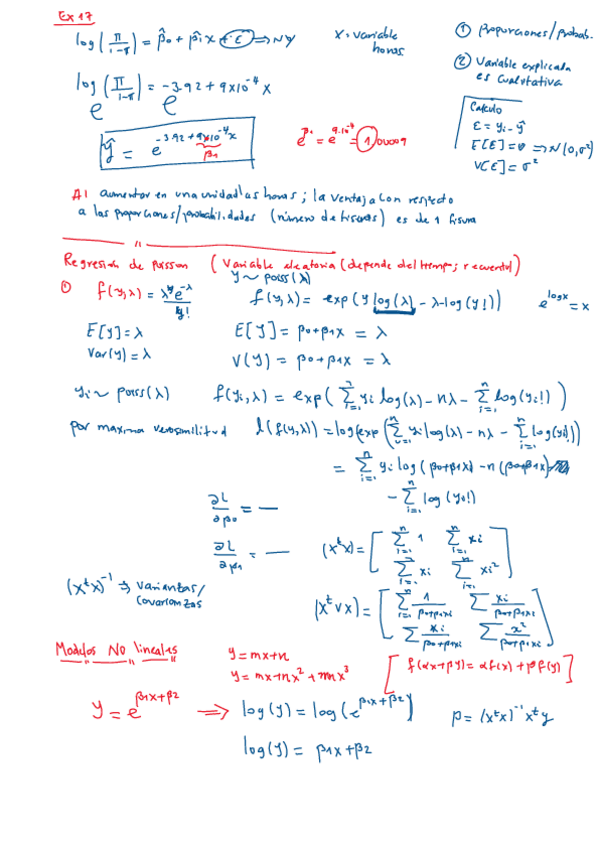 Ex 17
log(π/1-π) = β̂0 + β̂1x + ε ⇒ Nγ
x = variable horas
① Proporciones/probab.
② Variable explicada es cualitativa
log(π/1-π) = -3.92 + 9x10⁻⁴ x
e e
Calculo
ε = yi - ŷ
E[ε] = 0 ⇒ N(0,σ²)
V[ε] = σ²
ŷ = e^(-3.92 + 9x10⁻⁴x)
β1
e^β1 = e^(9.10⁻⁴) = 1,00009
Al aumentar en una unidad las horas; la ventaja con respecto
a las proporciones/probabilidades (número de fisuras) es de 1 fisura
Regresión de poisson (Variable aleatoria (depende del tiempo; recuento)
y ~ poiss(λ)
① f(y,λ) = λ^y e^-λ / y!
f(y,λ) = exp(y log(λ) - λ - log(y!))
e^logx = x
E[y] = λ
E[y] = β0 + β1x = λ
Var(y) = λ
V(y) = β0 + β1x = λ
yi ~ poiss(λ)
f(yi,λ) = exp(Σ yi log(λ) - nλ - Σ log(yi!))
por maxima verosimilitud
l(f(y,λ)) = log(exp(Σ yi log(λ) - nλ - Σ log(yi!))
= Σ yi log(β0+β1x) - n(β0+β1x)
- Σ log(yi!)
∂L/∂β0 = —
∂L/∂β1 = —
(x^t x) = [Σ 1 Σ xi
Σ xi Σ xi²]
(x^t x)⁻¹ ⇒ Varianzas/
Covarianzas
(x^t v x) = [Σ 1/β0+β1xi Σ xi/β0+β1xi
Σ xi/β0+β1xi Σ x²/β0+β1xi]
Modelos No lineales
y = mx+n
y = mx+nx²+mnx³
[f(αx+βy) = αf(x)+βf(y)]
y = e^(β1x+β2) ⇒ log(y) = log(e^(β1x+β2))
β = (x^t x)⁻¹ x^t y
log(y) = β1x+β2